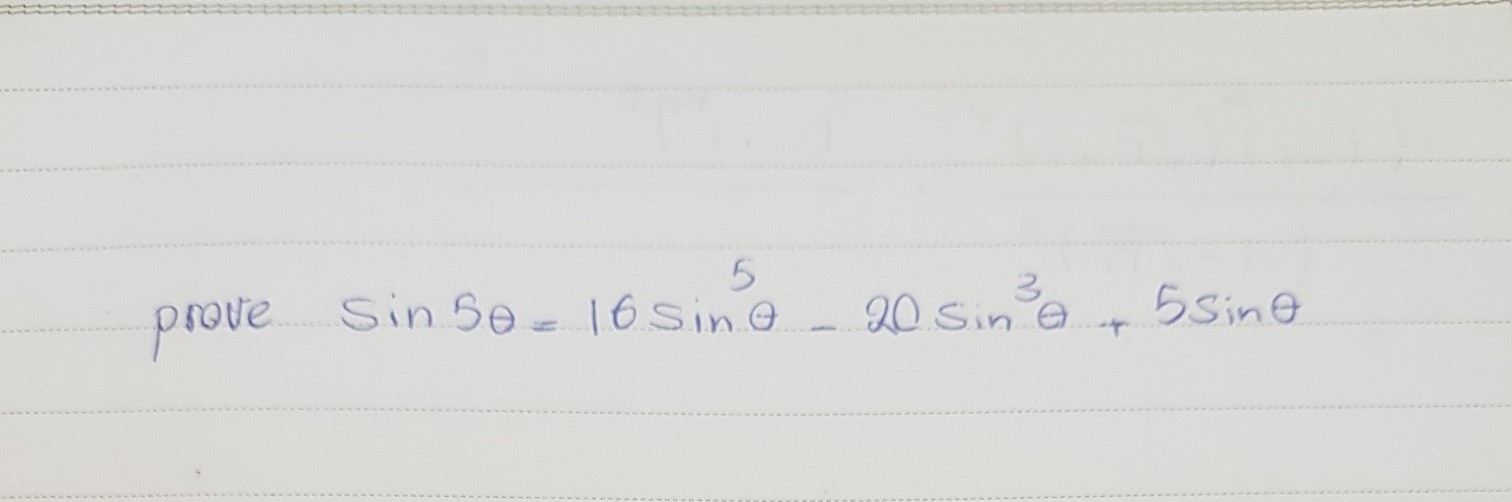 prove sin 5θ = 16 sin⁵θ - 20 sin³θ + 5 sin θ